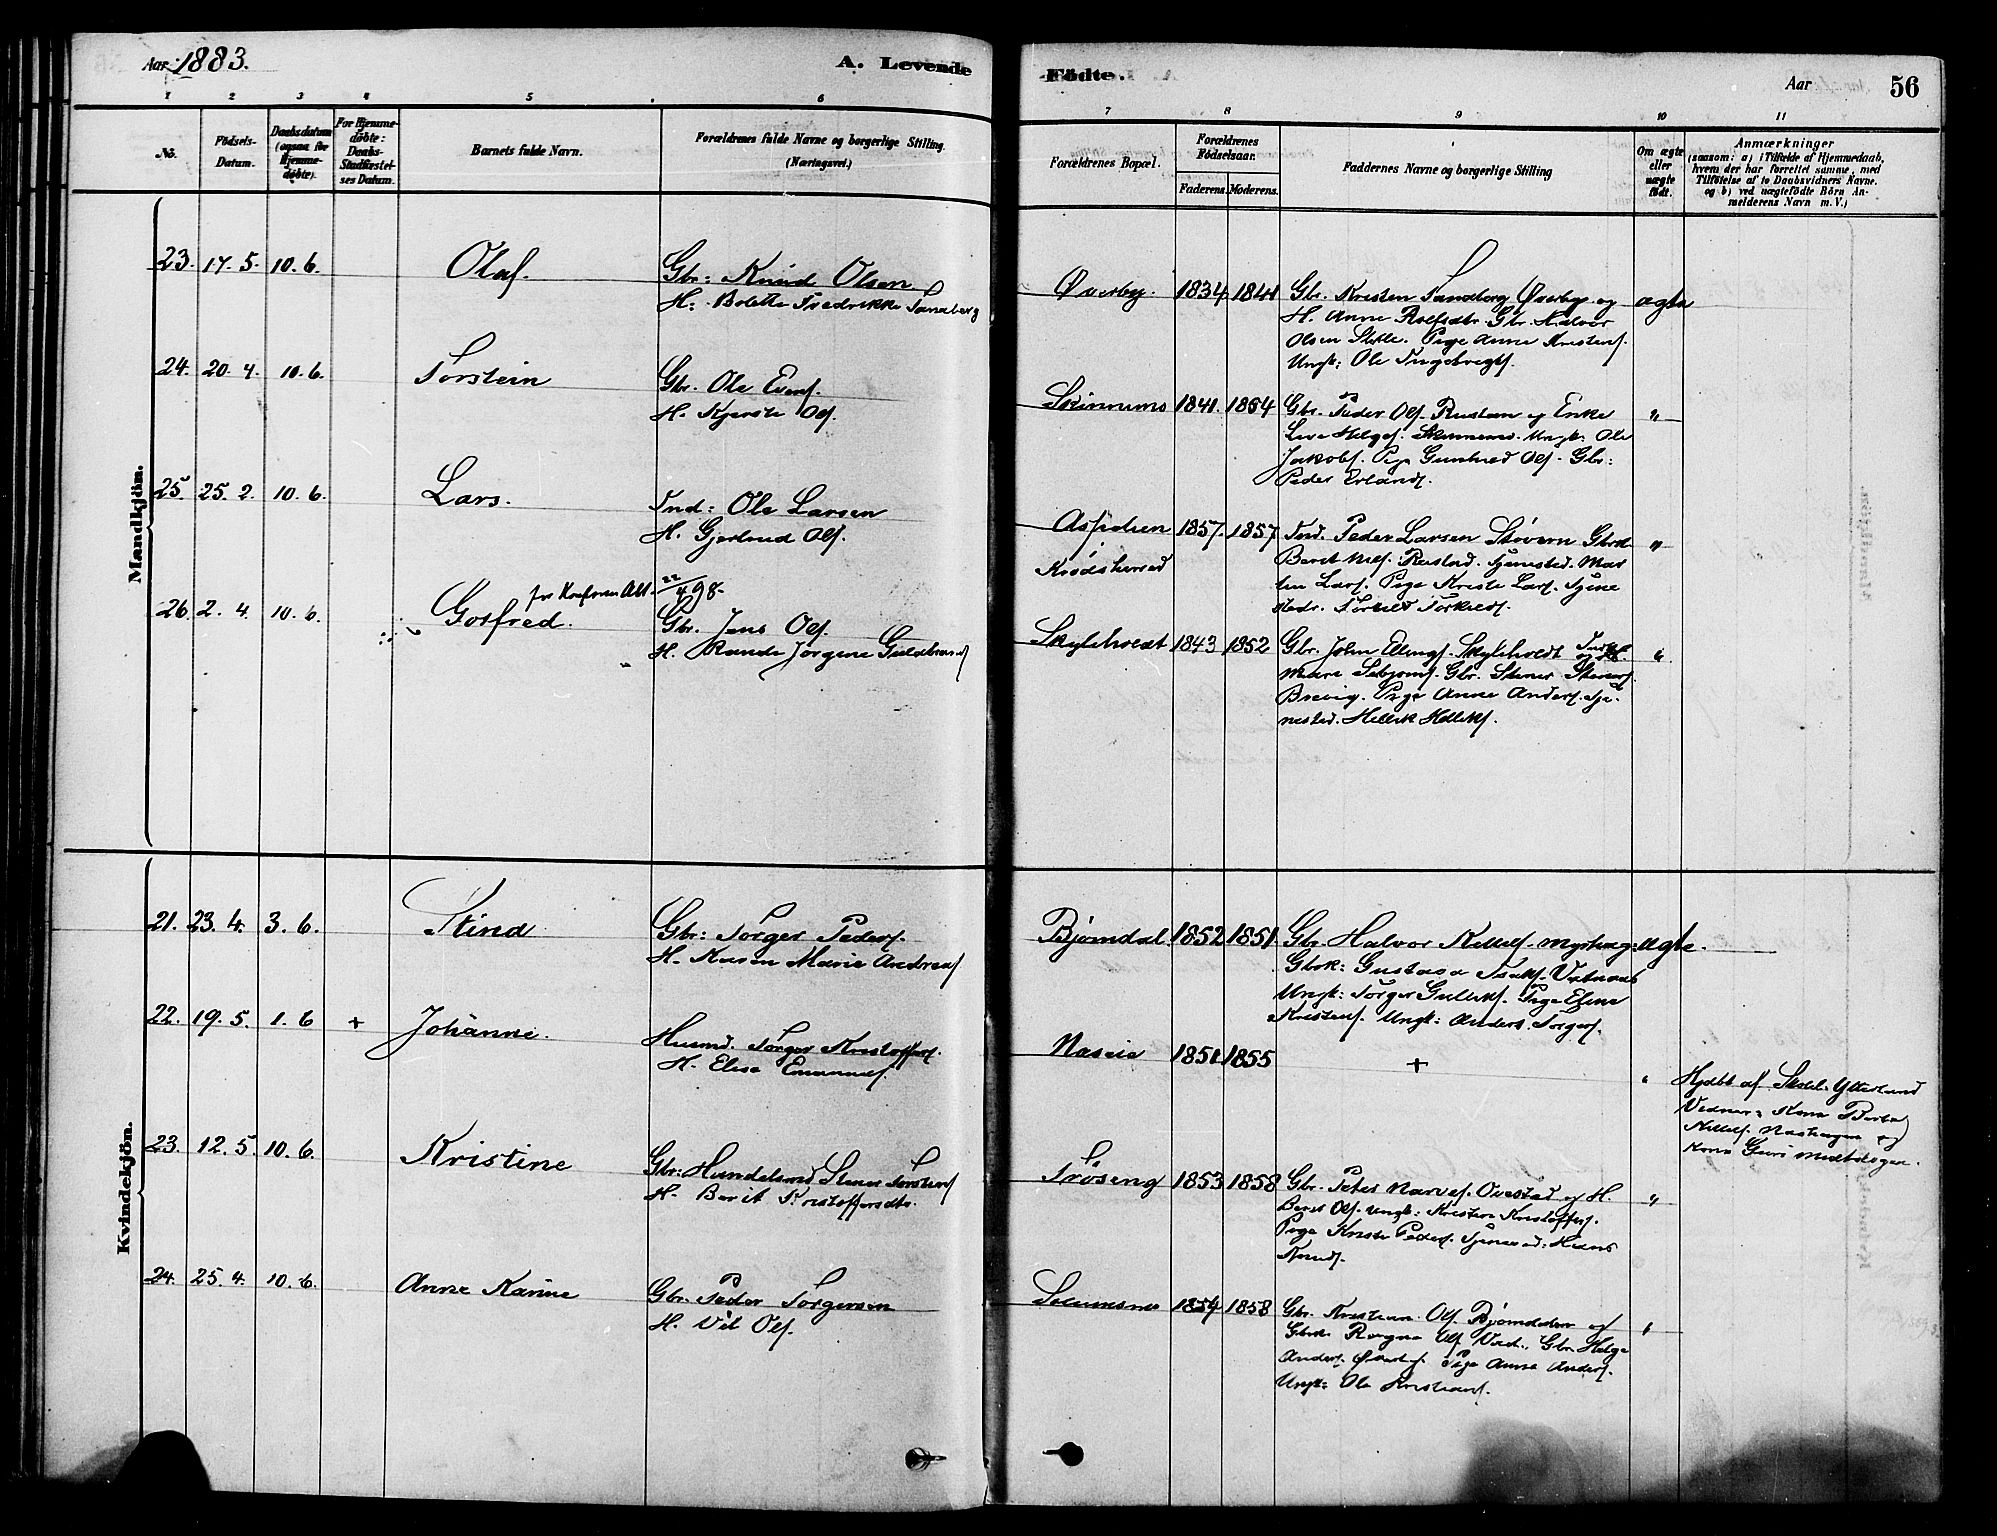 Aar 1883.
A. Levende
Födte.
Aar
56
1 2 3 4 5 6
7 8 9 10 11
No.
Födsels-Datum.
Daabsdatum (ogsaa for Hjemmedøbte).
For Hjemmedøbte: Daabs-Stadfæstelses Datum.
Barnets fulde Navn.
Forældrenes fulde Navne og borgerlige Stilling. (Næringsvei.)
Forældrenes Bopæl.
Forældrenes Fødselsaar.
Faderens. Moderens.
Faddernes Navne og borgerlige Stilling
Om ægte eller uægte født.
Anmærkninger
(saasom: a) i Tilfælde af Hjemmedaab,
hvem der har forrettet samme, med
Tilføielse af to Daabsvidners Navne.
og b) ved uægtefödte Börn An-
melderens Navn m. V.)
Mandkjön.
23. 17. 5. 10. 6. Olaf.
Gbr: Knud Olsen
H. Bolette Fredrikke Sandberg
Øverby. 1834 1841
Gbr. Kristen Sandberg Øverby og
H. Anne Rolfsdtr. Gbr. Halvor
Olsen Pige Anne Kristens.
Ungk: Ole Ingebregts.
ægte
24. 20. 4. 10. 6. Torstein
Gbr. Ole Evens.
H. Kjersti Ols.
Skinnems 1841. 1854
Gbr. Peder Ols. Rustan og Enke
Live Helges. Skinnems. Ungk: Ole
Jakobs. Pige Gunhild Ols. Gbr:
Peder Erlands.
"
25. 25. 2. 10. 6. Lars.
Ind: Ole Larsen
H. Gjertrud Ols.
Krødsherred 1857. 1857
Ind. Peder Larsen Støvern Gbrd
Berit Nils. Tjenested. Mar
tin Lars. Pige Kristi Lars. Tjene
stedr. Torkild Torkilds.
"
26. 2. 4. 10. 6. Gotfred.
for Konfirm Att. 22/4 98.
Gbr. Jens Ols.
H. Randi Jørgine Guldbrands
Skyleholdt 1843 1852
Gbr. John Ellings. Skyleholdt
Mari Gbr. Stener Steners.
Brevig. Pige Anne Anders. Tje-
nested. Hellik Helliks.
"
Kvindekjön.
21. 23. 4. 3. 6. Stine
Gbr: Torger Peders.
H. Karen Marie Andreas
Bjørndal. 1852 1851
Gbr. Halvor Kittils.
Gbrk: Gustava Isaks.
Ungk: Torger Gulliks. Pige Eline
Kristens. Ungk: Anders Torgers.
ægte.
22. 19. 5. 1. 6 + Johanne.
Husmd. Torger Kristoffers.
H. Elise Emanuels.
1851 1855
+
"
Hjdbt af Ytterlund
Vidner: Kone Berte
Kittils. og
Kone Guri
23. 12. 5. 10. 6. Kristine
Gbr: Handelsmd Stener Torstens
H. Berit Kristoffersdtr.
Trøseng 1853 1858
Gbr. Peter Narves. Ovestad og H.
Berit Ols. Ungk: Kristen Kristoffers.
Pige Kristi Peders. Tjenested: Hans
Knuds.
"
24. 25. 4. 10. 6. Anne Karine
Gbr. Peder Torgersen
H. Ols.
1854 1858
Gbr. Kristian Ols. Bjørndalen og
Gbrd. Ragne Ols. Gbr. Helge
Anders. Pige Anne Anders.
Ungk: Ole Kristians.
"